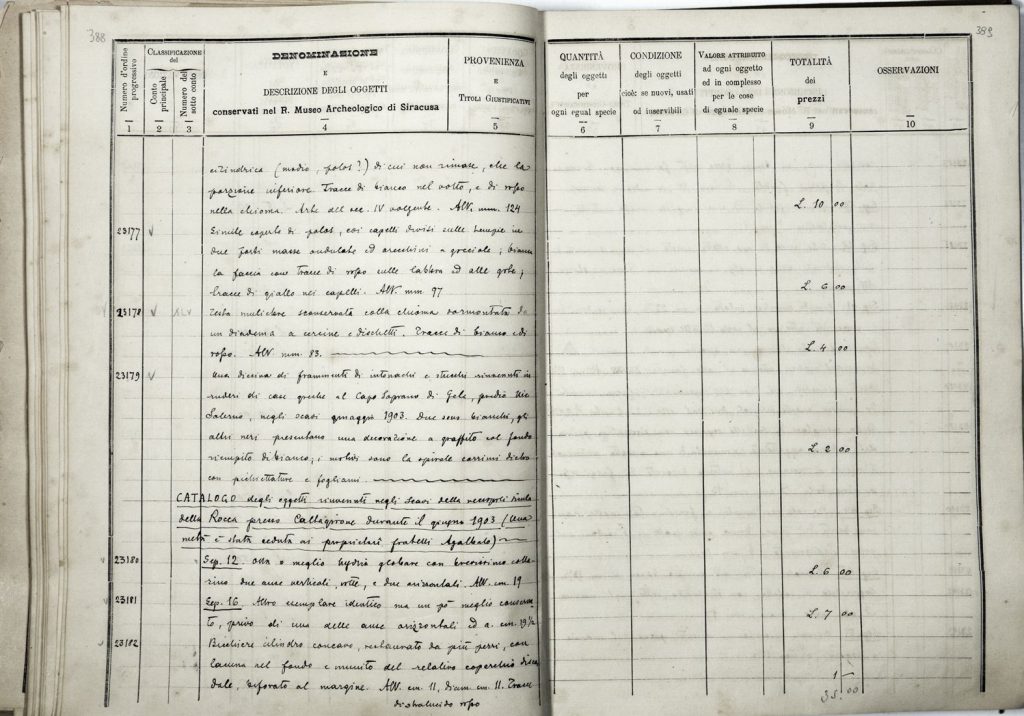 388
Numero d'ordine progressivo
CLASSIFICAZIONE del
Conto principale
Numero del sotto conto
DENOMINAZIONE
E
DESCRIZIONE DEGLI OGGETTI
conservati nel R. Museo Archeologico di Siracusa
PROVENIENZA
E
TITOLI GIUSTIFICATIVI
1 2 3 4 5
cilindrica (modio, polos?) di cui non rimase, che la
porzione inferiore. Tracce di bianco nel volto, e di rosso
nella chioma. Arte del sec. IV volgente. Alt. mm. 124
23177 Simile coperta di polos, coi capelli divisi sulle tempie in
due forti masse ondulate ed orecchini a gocciole; bianca
la faccia con tracce di rosso sulle labbra ed alle gote;
tracce di giallo nei capelli. Alt. mm 97
23178 XLV Testa muliebre sconservata colla chioma sormontata da
un diadema a cercine e dischetti. Tracce di bianco e di
rosso. Alt mm. 83.
23179 Una diecina di frammenti di intonachi e stucchi rinvenuti in
ruderi di case greche al Capo Soprano di Gela, predio
Salerno, negli scavi maggio 1903. Due sono bianchi, gli
altri neri presentano una decorazione a graffito col fondo
riempito di bianco; i motivi sono la spirale corrimi dietro
con picchiettature e fogliami.
CATALOGO degli oggetti rinvenuti negli scavi della necropoli sicula
della Rocca presso Caltagirone durante il giugno 1903 (Una
metà è stata ceduta ai proprietari fratelli)
23180 Sep. 12. Olla o meglio hydria globare con brevissimo colla-
rino due anse verticali, rotte, e due orizontali. Alt. cm. 19
23181 Sep. 16. Altro esemplare identico ma un pò meglio conserva-
to, privo di una delle anse orizzontali ed a. cm. 19 1/2
23182 Bicchiere cilindro concavo, restaurato da più pezzi, con
lacuna nel fondo e munito del relativo coperchio disco
dale, biforato al margine. Alt. cm. 11, diam. cm. 11. Tracce
di stralucido rosso
389
QUANTITÀ
degli oggetti
per
ogni egual specie
CONDIZIONE
degli oggetti
cioè: se nuovi, usati
od inservibili
VALORE ATTRIBUITO
ad ogni oggetto
ed in complesso
per le cose
di eguale specie
TOTALITÀ
dei
prezzi
OSSERVAZIONI
6 7 8 9 10
L. 10 00
L. 6 00
L. 4 00
L. 2 00
L. 6 00
L. 7 00
1 –
35.00